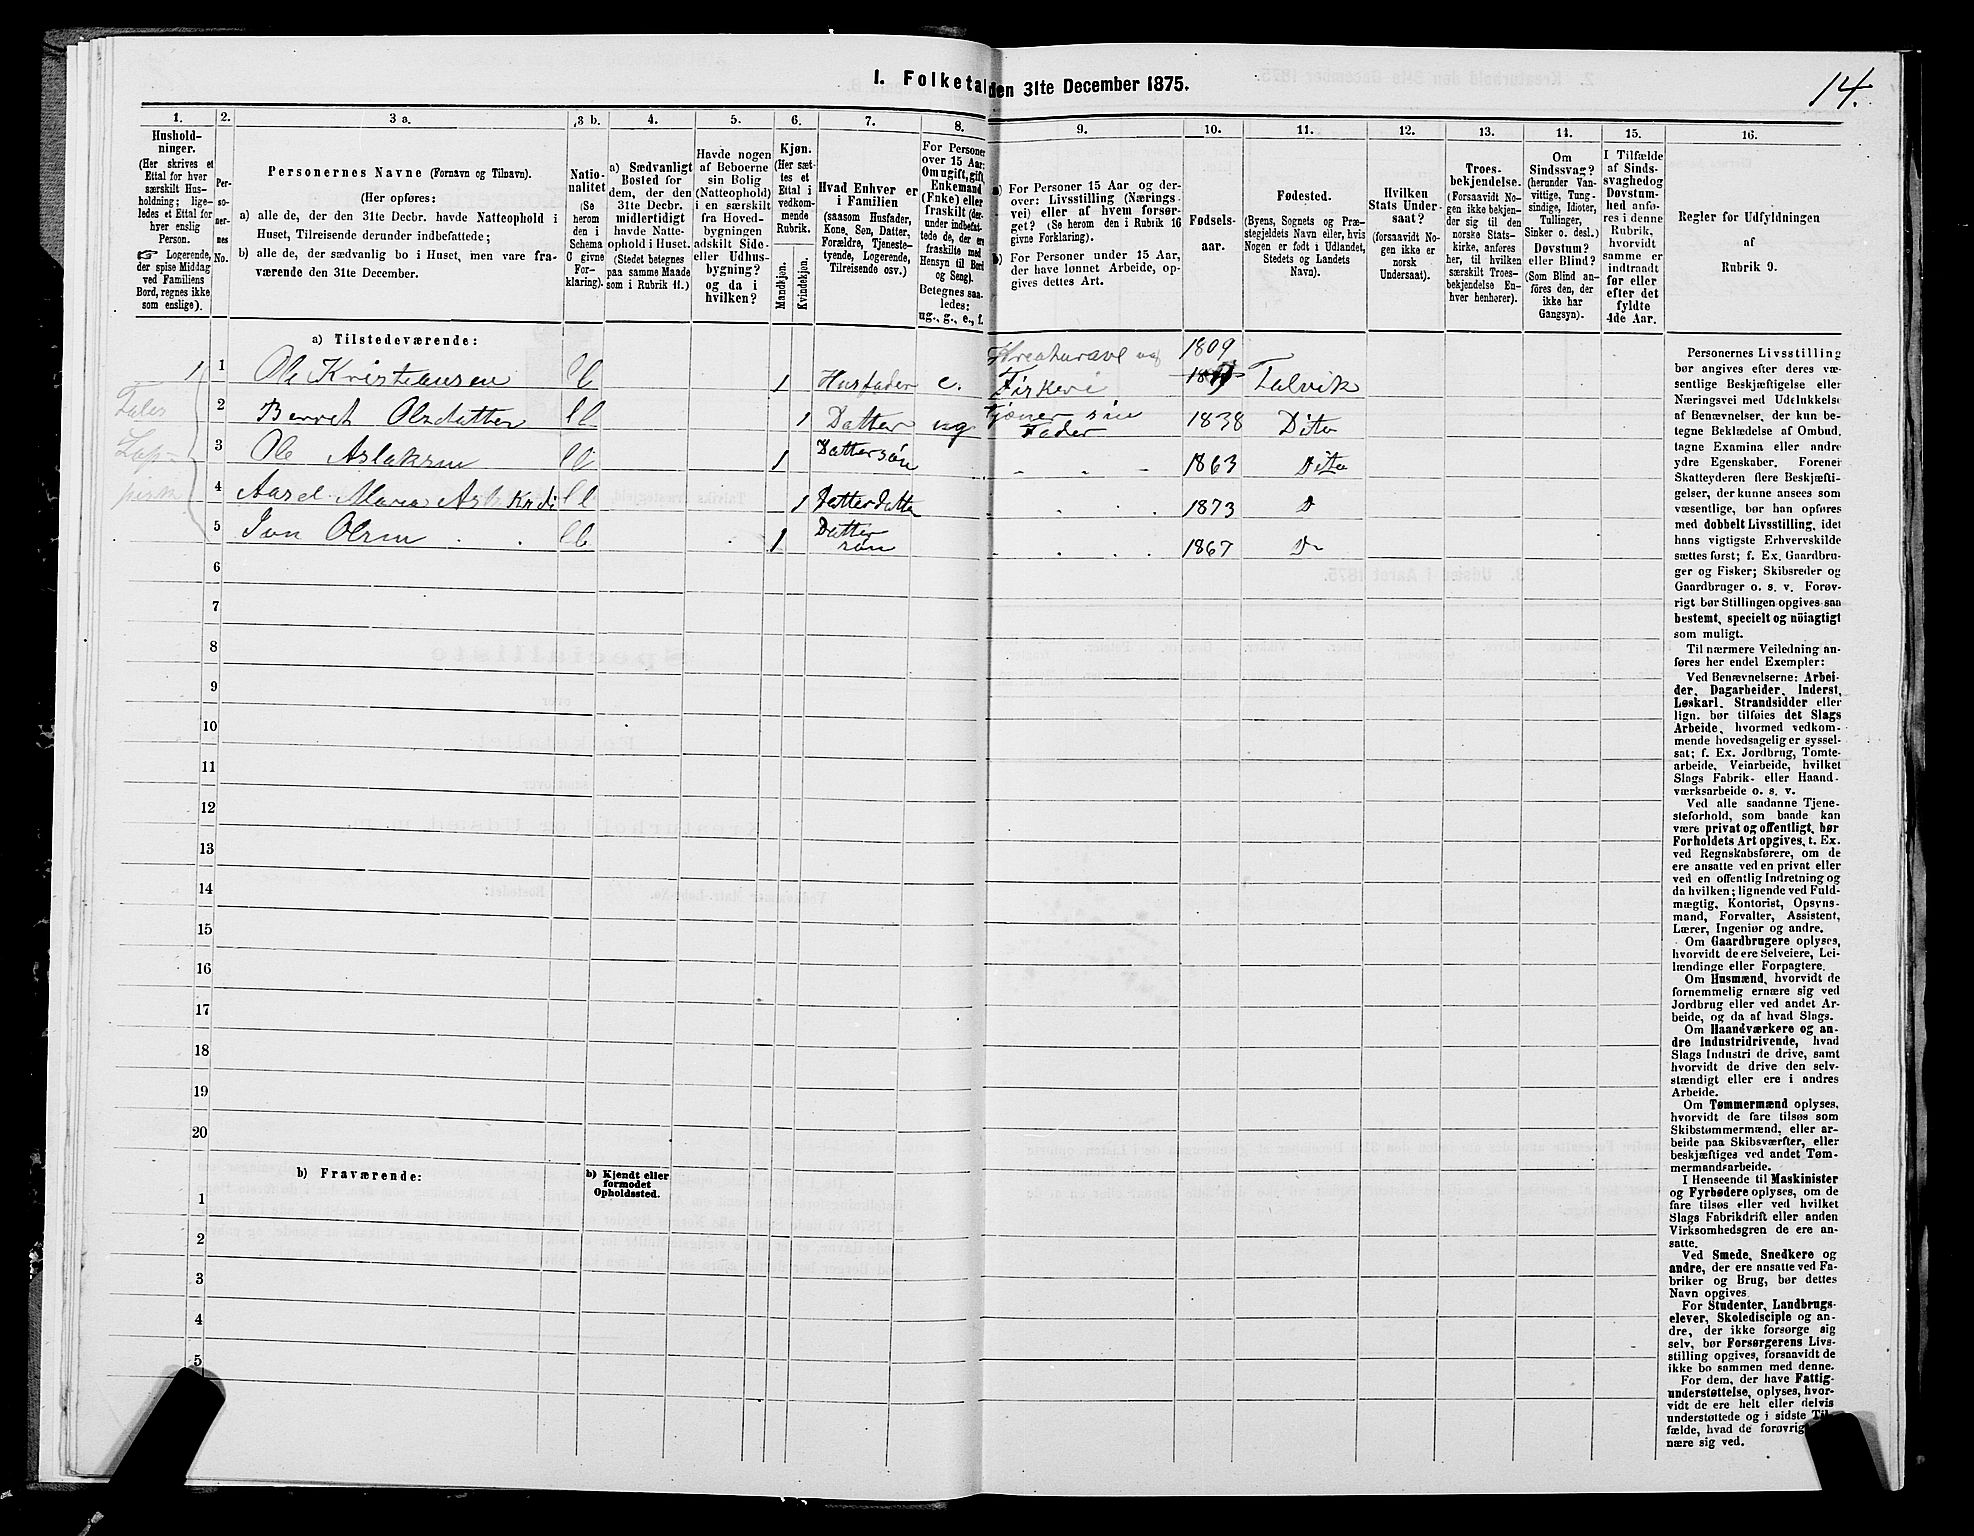 I. Folketal den 31te December 1875.
14.
1.
Hushold-
ninger.
(Her skrives et
Ettal for hver
særskilt Hus-
holdning; lige-
ledes et Ettal for
hver enslig
Person.
☞ Logerende,
der spise Middag
ved Familiens
Bord, regnes ikke
som enslige).
2.
Per-
so-
ner-
nes
No.
3 a.
Personernes Navne (Fornavn og Tilnavn).
(Her opføres:
a) alle de, der den 31te Decbr. havde Natteophold i
Huset, Tilreisende derunder indbefattede;
b) alle de, der sædvanlig bo i Huset, men vare fra-
værende den 31te December.
3 b.
Natio-
nalitet
(Se
herom
den i
Schema
C givne
For-
klaring).
4.
a) Sædvanligt
Bosted for
dem, der den
31te Decbr.
midlertidigt
havde Natte-
ophold i Huset.
(Stedet betegnes
paa samme Maade
som i Rubrik 11.)
5.
Havde nogen
af Beboerne
sin Bolig
(Natteophold)
i en særskilt
fra Hoved-
bygningen
adskilt Side-
eller Udhus-
bygning?
og da i
hvilken?
6.
Kjøn.
(Her sæt-
tes et
Ettal i
vedkom-
mende
Rubrik.
Mandkjøn.
Kvindekjøn.
7.
Hvad Enhver er
i Familien
(saasom Husfader,
Kone, Søn, Datter,
Forældre, Tjeneste-
tyende, Logerende,
Tilreisende osv.)
8.
For Personer
over 15 Aar:
Om ugift, gift,
Enkemand
(Enke) eller
fraskilt (der-
under indbefat-
tede de, der er
fraskilte med
Hensyn til Bord
og Seng).
Betegnes saa-
ledes:
ug., g., e., f.
9.
a) For Personer 15 Aar og der-
over: Livsstilling (Nærings-
vei) eller af hvem forsør-
get? (Se herom den i Rubrik 16
givne Forklaring).
b) For Personer under 15 Aar,
der have lønnet Arbeide, op-
gives dettes Art.
10.
Fødsels-
aar.
11.
Fødested.
(Byens, Sognets og Præ-
stegjeldets Navn eller, hvis
Nogen er født i Udlandet,
Stedets og Landets
Navn).
12.
Hvilken
Stats Under-
saat?
(forsaavidt No-
gen ikke er
norsk
Undersaat).
13.
Troes-
bekjendelse.
(Forsaavidt No-
gen ikke bekjen-
der sig til den
norske Stats-
kirke, anføres
her, til hvilken
særskilt Troes-
bekjendelse En-
hver henhører).
14.
Om
Sindssvag?
(herunder Van-
vittige, Tung-
sindige, Idioter,
Tullinger,
Sinker o. desl.)
Døvstum?
eller Blind?
(Som Blind an-
føres den, der
ikke har
Gangsyn).
15.
I Tilfælde
af Sinds-
svaghed og
Døvstum-
hed anfø-
res i denne
Rubrik,
hvorvidt
samme er
indtraadt
før eller
efter det
fyldte
4de Aar.
16.
Regler for Udfyldningen
af
Rubrik 9.
a) Tilstedeværende:
Kreaturavl og 1809
1 1 Ole Kristiansen 1 Husfader e. Fiskeri Talvik
2 Berret Olsdatter 1 Datter ug Tjener sin Fader 1838 Dito
3 Ole Aslaksen 1 Dattersøn 1863 Dito
4 Maria 1 Datterdatter 1873 D
5 Jon Olsen 1 Datter søn 1867 Do
Taler
Lap-
pisk
6
7
8
9
10
11
12
13
14
15
16
17
18
19
20
b) Fraværende:
b) Kjendt eller
formodet
Opholdssted.
1
2
3
4
5
Personernes Livsstilling
bør angives efter deres væ-
sentlige Beskjæftigelse eller
Næringsvei med Udelukkelse
af Benævnelser, der kun be-
tegne Beklædelse af Ombud,
tagne Examina eller andre
ydre Egenskaber. Forener
Skatteyderen flere Beskjæfti-
gelser, der kunne ansees som
væsentlige, bør han opføres
med dobbelt Livsstilling, idet
hans vigtigste Erhvervskilde
sættes først; f. Ex. Gaardbru-
ger og Fisker; Skibsreder og
Gaardbruger o. s. v. Forøv-
rigt bør Stillingen opgives saa
bestemt, specielt og nöiagtigt
som muligt.
Til nærmere Veiledning an-
føres her endel Exempler:
Ved Benævnelserne: Arbei-
der, Dagarbeider, Inderst,
Løskarl, Strandsidder eller
lign. bør tilføies det Slags
Arbeide, hvormed vedkom-
mende hovedsagelig er syssel-
sat; f. Ex. Jordbrug, Tomte-
arbeide, Veiarbeide, hvilket
Slags Fabrik- eller Haand-
værksarbeide o. s. v.
Ved alle saadanne Tjene-
steforhold, som baade kan
være privat og offentligt, bør
Forholdets Art opgives, t. Ex.
ved Regnskabsførere, om de
ere ansatte ved en privat eller
ved en offentlig Indretning og
da hvilken; lignende ved Fuld-
mægtig, Kontorist, Opsyns-
mand, Forvalter, Assistent,
Lærer, Ingeniør og andre.
Om Gaardbrugere oplyses,
hvorvidt de ere Selveiere, Lei-
lændinge eller Forpagtere.
Om Husmænd, hvorvidt de
fornemmelig ernære sig ved
Jordbrug eller ved andet Ar-
beide, og da af hvad Slags.
Om Haandværkere og an-
dre Industridrivende, hvad
Slags Industri de drive, samt
hvorvidt de drive den selv-
stændigt eller ere i andres
Arbeide.
Om Tømmermænd oplyses,
hvorvidt de fare tilsøs som
Skibstømmermænd, eller ar-
beide paa Skibsværfter, eller
beskjæftiges ved andet Tøm-
mermandsarbeide.
I Henseende til Maskinister
og Fyrbødere oplyses, om de
fare tilsøs eller ved hvilket
Slags Fabrikdrift eller anden
Virksomhedsgren de ere an-
satte.
Ved Smede, Snedkere og
andre, der ere ansatte ved Fa-
briker og Brug, bør dettes
Navn opgives.
For Studenter, Landbrugs-
elever, Skoledisciple og an-
dre, der ikke forsørge sig
selv, bør Forsørgerens Livs-
stilling opgives, forsaavidt de
ikke bo sammen med denne.
For dem, der have Fattig-
understøttelse, oplyses, hvor-
vidt de ere helt eller delvis
understøttede og i sidste Til-
fælde, hvad de forøvrigt er-
nære sig ved.